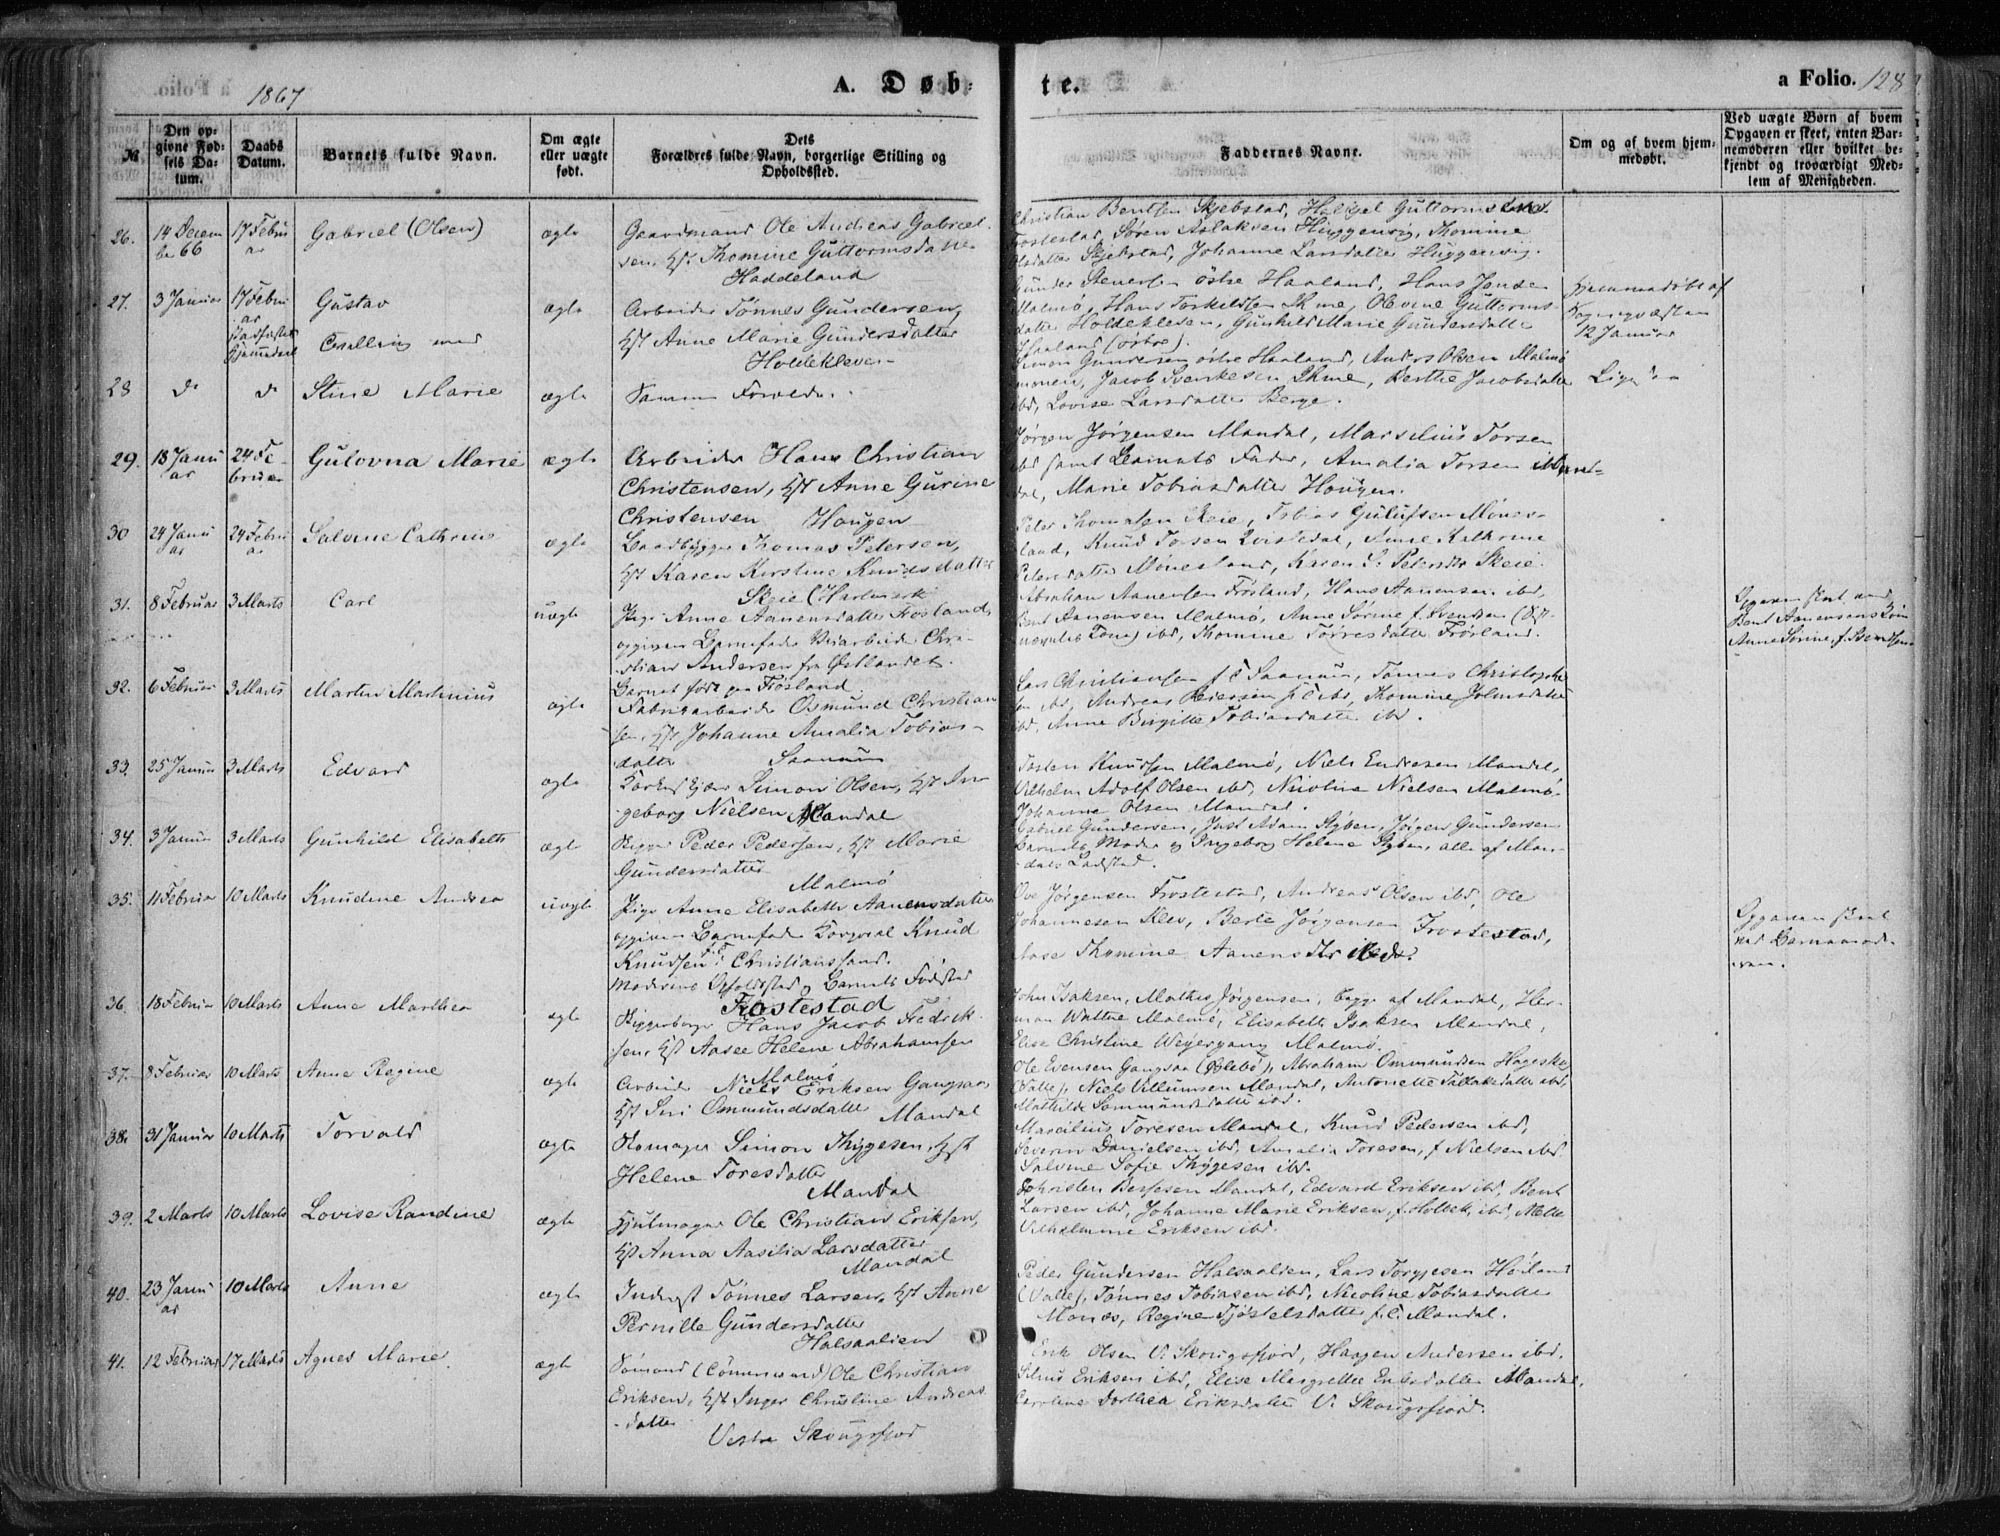 1867
A. Døb-
te.
a Folio. 128
№
Den op-
givne Fød-
sels Da-
tum.
Daabs
Datum.
Barnets fulde Navn.
Om ægte
eller uægte
født.
Dets
Forældres fulde Navn, borgerlige Stilling og
Opholdssted.
Faddernes Navne.
Om og af hvem hjem-
medøbt.
Ved uægte Børn af hvem
Opgaven er skeet, enten Bar-
nemoderen eller hvilket be-
kjendt og troværdigt Med-
lem af Menigheden.
26.
14 Decem
ber 66
17 Febru
ar
Gabriel (Olsen)
ægte
Gaardmand Ole Andreas Gabriel-
sen, Hst Thomine Guttormsdatter
Haddeland
Christian Bentsen Skjebstad, Guttorms
Frostestad, Søren Aslaksen Huggenvig, Thomine
Olsdatter Skjebstad, Johanne Larsdatter Huggenvig.
27.
3 Januar
17 Febru
ar
Gustav
Tvilling med
ægte
Arbeider Tønnes Gundersen,
Hst Anne Marie Gundersdatter
Holdekleven
østre Haaland, Hans Jensen
Malmø, Hans Torkildsen Ihme, Olevine Guttorms-
datter Holdekleven, Gunhild Marie Gundersdatter
Haaland (østre).
Hjemmedøbt af
12 Januar
28
do
do
Stine Marie
ægte
Samme Forældre.
Simon Gundersen østre Haaland, Anders Olsen Malmø
Jacob Ihme, Berthe Jacobsdatter
ibd, Lovise Larsdatter Berge.
29.
18 Janu
ar
24 Fe-
bruar
Gulovna Marie
ægte
Arbeider Hans Christian
Christensen, Hst Anne Gurine
Christensen Hougen
Jørgen Jørgensen Mandal, Marselius Torsen
ibd samt Barnets Fader, Amalia Torsen Man-
dal, Marie Tobiasdatter Hougen.
30
24 Janu
ar
24 Febru
ar
Salvine Cathrine
ægte
Baadbygger Thomas Petersen,
Hst Karen Kirstine Knudsdatter
Skeie (Harkmark)
Peter Thomasen Skeie, Tobias Gulufsen Mones-
land, Knud Torsen Kvisledal, Anne Kathrine
Petersdatter Monesland, Karen S. Petersdtr Skeie.
31.
8 Februar
3 Marts
Carl
uægte
Pige Anne Aanensdatter Frøsland,
opgiven Barnefader Veiarbeider Chri-
stian Andersen fra Østlandet.
Barnet født paa Frøsland
Abraham Aanensen Frøsland, Hans Aanensen ibd,
Bent Aanensen Malmø, Anne Sørine f. Svendsen
ibd, Thomine Torresdatter Frøsland.
Opgaven skeet ved
Bent Aanensens Kone
Anne Sørine, f. Svendsen
32.
6 Februar
3 Marts
Martin Martinius
ægte
Fabrikarbeider Osmund Christian
sen, Hst Johanne Amalia Tobias-
datter Saanum
Lars Christiansen Saanum, Tønnes Christophe
sen ibd, Andreas Reiersen ibd, Thomine Johnsdatter
ibd, Anne Birgitte Tobiasdatter ibd.
33.
25 Januar
3 Marts
Edvard
ægte
Simon Olsen, Hst An
geborg Nielsen Mandal
Torsten Knudsen Malmø, Niels Endresen Mandal,
Vilhelm Adolf Olsen ibd, Nicoline Nielsen Malmø
Johanne Olsen Mandal.
34.
3 Januar
3 Marts
Gunhild Elisabeth
ægte
Rigger Peder Pedersen, Hst Marie
Gundersdatter
Malmø
Gabriel Gundersen, Just Adam Styben, Jørgen Gundersen
Barnets Moder og Ingeborg Helene Styben, alle af Man-
dals Ladsted.
35.
11 Februar
10 Marts
Knudine Andrea
uægte
Pige Anne Elisabeth Aanensdatter
opgiven Barnefader Korporal Knud
Knudsen, Christianssand.
Moderens Opholdssted og Barnets Fødsted
Frostestad
Ove Jørgensen Frostestad, Andreas Olsen ibd, Ole
Johannesen Klev, Berte Jørgensen Frostestad,
Aase Thomine Aanensdtr
Opgaven skeet
ved Barnemode-
ren.
36.
18 Februar
10 Marts
Anne Marthea
ægte
Hans Jacob Fredrik-
sen, Hst Aasee Helene Abrahamsen
Malmø
John Isaksen, Mathis Jørgensen, begge af Mandal, Her-
man Wattne Malmø, Elisabeth Isaksen Mandal,
Elise Christine Weyergang Malmø.
37.
8 Februar
10 Marts
Anne Regine
ægte
Arbeider Niels Eriksen Gangsaa,
Hst Siri Ommundsdatter Mandal
Ole Evensen Gangsaa (Øslebø), Abraham Ommundsen
(Valle), Niels Villumsen Mandal, Antonette Tallaksdatter ibd,
Mathilde ibd.
38.
31 Januar
10 Marts
Torvald
ægte
Simon Thygesen, Hst
Helene Toresdatter
Mandal
Marcilius Toresen Mandal, Knud Pedersen ibd,
Severin Danielsen ibd, Amalia Toresen, f Nielsen ibd
Salvine Sofie Thygesen ibd.
39.
2 Marts
10 Marts
Lovise Randine
ægte
Hjulmager Ole Christian Eriksen,
Hst Anna Aasilia Larsdatter
Mandal
Mandal, Edvard Eriksen ibd, Bent
Larsen ibd, Johanne Marie Eriksen, f. Holbek, ibd, Mette
Vilhelmine Eriksen ibd.
40.
23 Janu
ar
10 Marts
Anne
ægte
Inderst Tønnes Larsen, Hst Anne
Pernille Gundersdatter
Halsaalien
Peder Gundersen Halsaalien, Lars Torgjesen Høiland
(Valle), Tønnes Tobiasen ibd, Nicoline Tobiasdatter
Mones, Regine Tjøstelsdatter Mandal.
41.
12 Februar
17 Marts
Agnes Marie
ægte
Sømand (Tømmermand) Ole Christian
Eriksen, Hst Inger Christine Andreas
-datter
Vestre Skougsfjord
Erik Olsen V. Skougsfjord, Haagen Andersen ibd.
Eriksen ibd, Elise Margrethe Eriksdatter Mandal,
Caroline Dorthea Eriksdatter V. Skougsfjord.